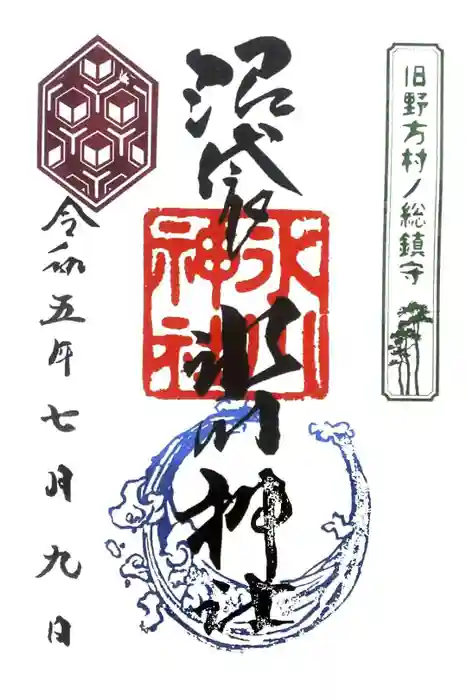 旧野方村ノ総鎮守
沼袋氷川神社
氷川神社
令和五年七月九日